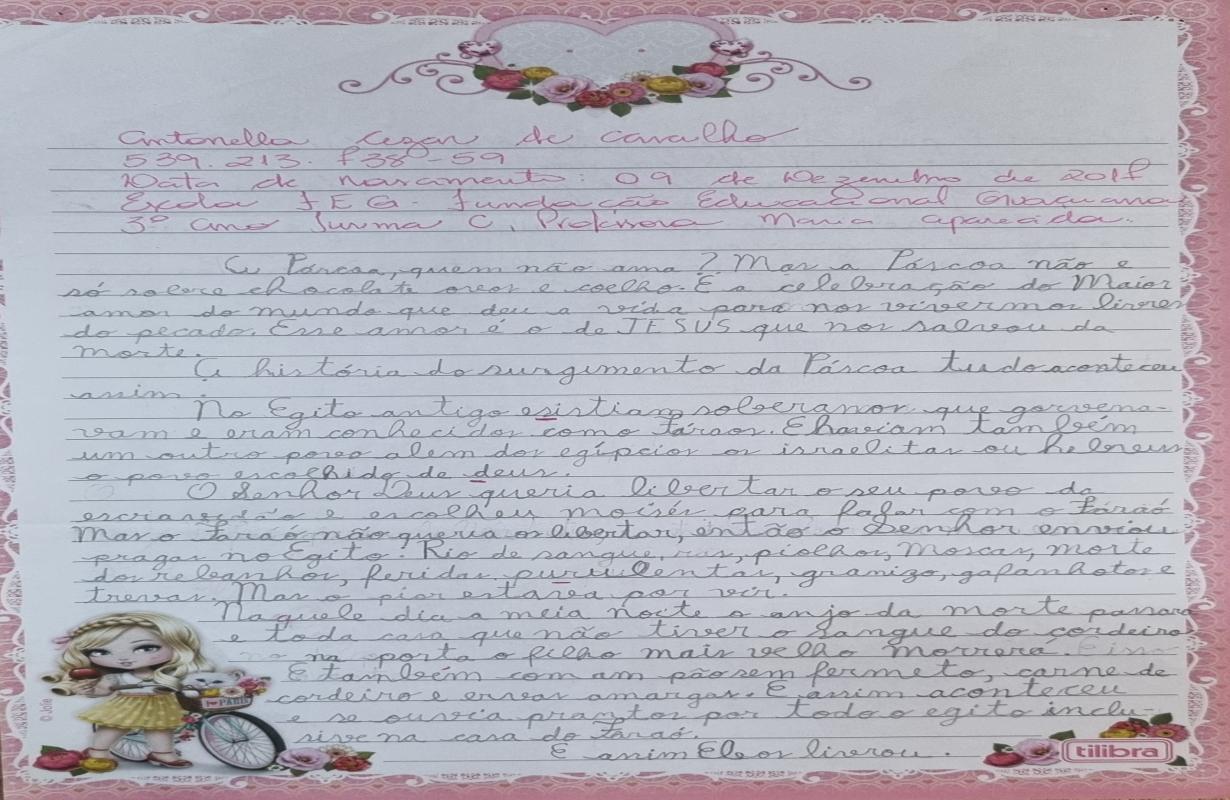 Antonella Cezar de Carvalho
539.213.f38-59
Data de nascimento: 09 de Dezembro de 201f
Escola FEG- Fundação Educacional Guaçuana
3º ano Turma C, Professora Maria aparecida.
A Páscoa, quem não ama? Mas a Páscoa não e
só sobre chocolate ovos e coelho. É a celebração do Maior
amor do mundo que deu a vida para nos vivermos livres
do pecado. Esse amor é o de JESUS que nos salvou da
morte.
A história do surgimento da Páscoa tudo aconteceu
assim.
No Egito antigo esistiam soberanos que gorvena-
vam e eram conhecidos como Fáraos. E haviam também
um outro povo alem dos egípcios os israelitas ou hebreus
o povo escolhido de deus.
O Senhor Deus queria libertar o seu povo da
escravidão e escolheu moisés para falar com o Fáraó
Mas o Faraó não queria os libertar, então o Senhor enviou
pragas no Egito: Rio de sangue, rãs, piolhos, Moscas, morte
dos rebanhos, feridas purulentas, granizo, gafanhotos e
trevas. Mas o pior estava por vir.
Naquele dia a meia noite o anjo da morte passara
e toda casa que não tiver o sangue do cordeiro
na porta o filho mais velho morrerá.
E também comam pão sem fermeto, carne de
cordeiro e ervas amargas. E assim aconteceu
e se ouvia prantos por todo o egito inclu-
sive na casa do Faraó.
E assim Ele os livrou.
I ♥ PARIS
© Jolie
tilibra